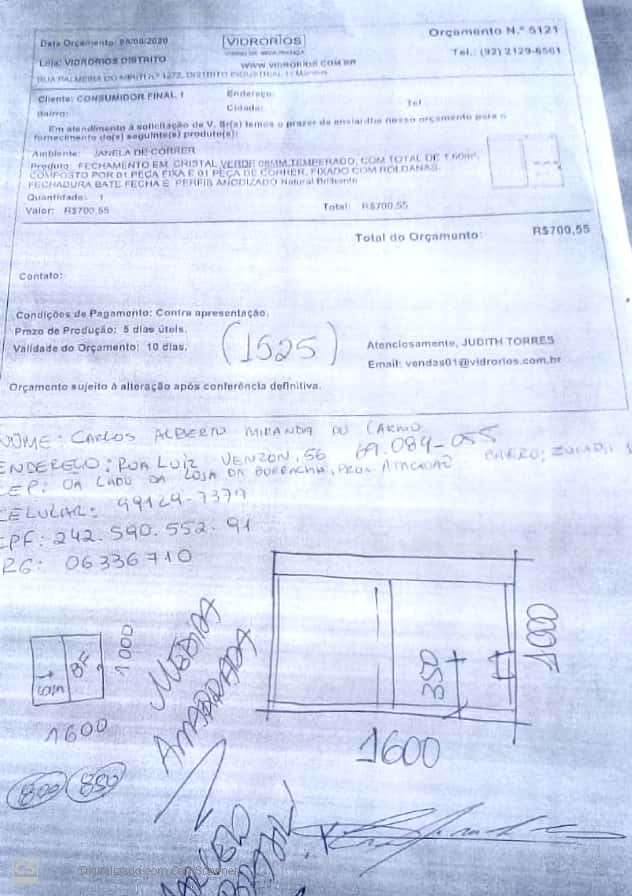 Data Orçamento: 06/08/2020
VIDRORIOS
Orçamento N.º 5121
Loja: VIDRORIOS DISTRITO
WWW.VIDRORIOS.COM.BR
Tel.: (92) 2129-6561
Cliente: CONSUMIDOR FINAL 1
Endereço:
Bairro:
Cidade:
Tel
Em atendimento à solicitação de V. Sr(a) temos o prazer de enviar-lhe nosso orçamento para o
fornecimento do(s) seguinte(s) produto(s):
Ambiente: JANELA DE CORRER
Produto: FECHAMENTO EM CRISTAL VERDE 08MM TEMPERADO, COM TOTAL DE 1,60m²,
COMPOSTO POR 01 PEÇA FIXA E 01 PEÇA DE CORRER, FIXADO COM ROLDANAS,
FECHADURA BATE FECHA E PERFIS ANODIZADO Natural Brilhante
Quantidade: 1
Valor: R$700,55
Total: R$700,55
Total do Orçamento: R$700,55
Contato:
Condições de Pagamento: Contra apresentação.
Prazo de Produção: 5 dias úteis.
Validade do Orçamento: 10 dias.
(1525)
Atenciosamente, JUDITH TORRES
Email: vendas01@vidrorios.com.br
Orçamento sujeito à alteração após conferência definitiva.
NOME: CARLOS ALBERTO MIRANDA DO CARMO
ENDEREÇO: RUA LUIZ VENZON, 56 69.084-055 BAIRRO: ZUMBI
CEP: OA LADO DA LOJA DA BORRACHA,
CELULAR: 99129-7377
CPF: 242.590.552.91
RG: 06336710
BF
1000
1600
800 850
MEDIDA
AMARRADA
350
1000
1600
Digitalizado com CamScanner